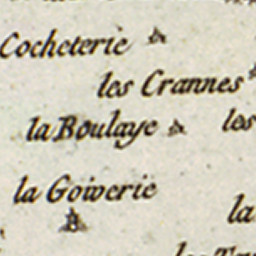 Cocheterie
les Crannes
la Boulaye
les
la Goiverie
la